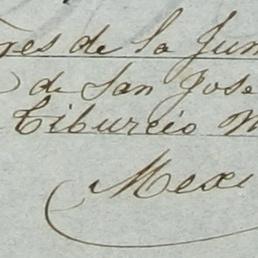 res de la Jun
de San Jose
Tiburcio M
Mexi